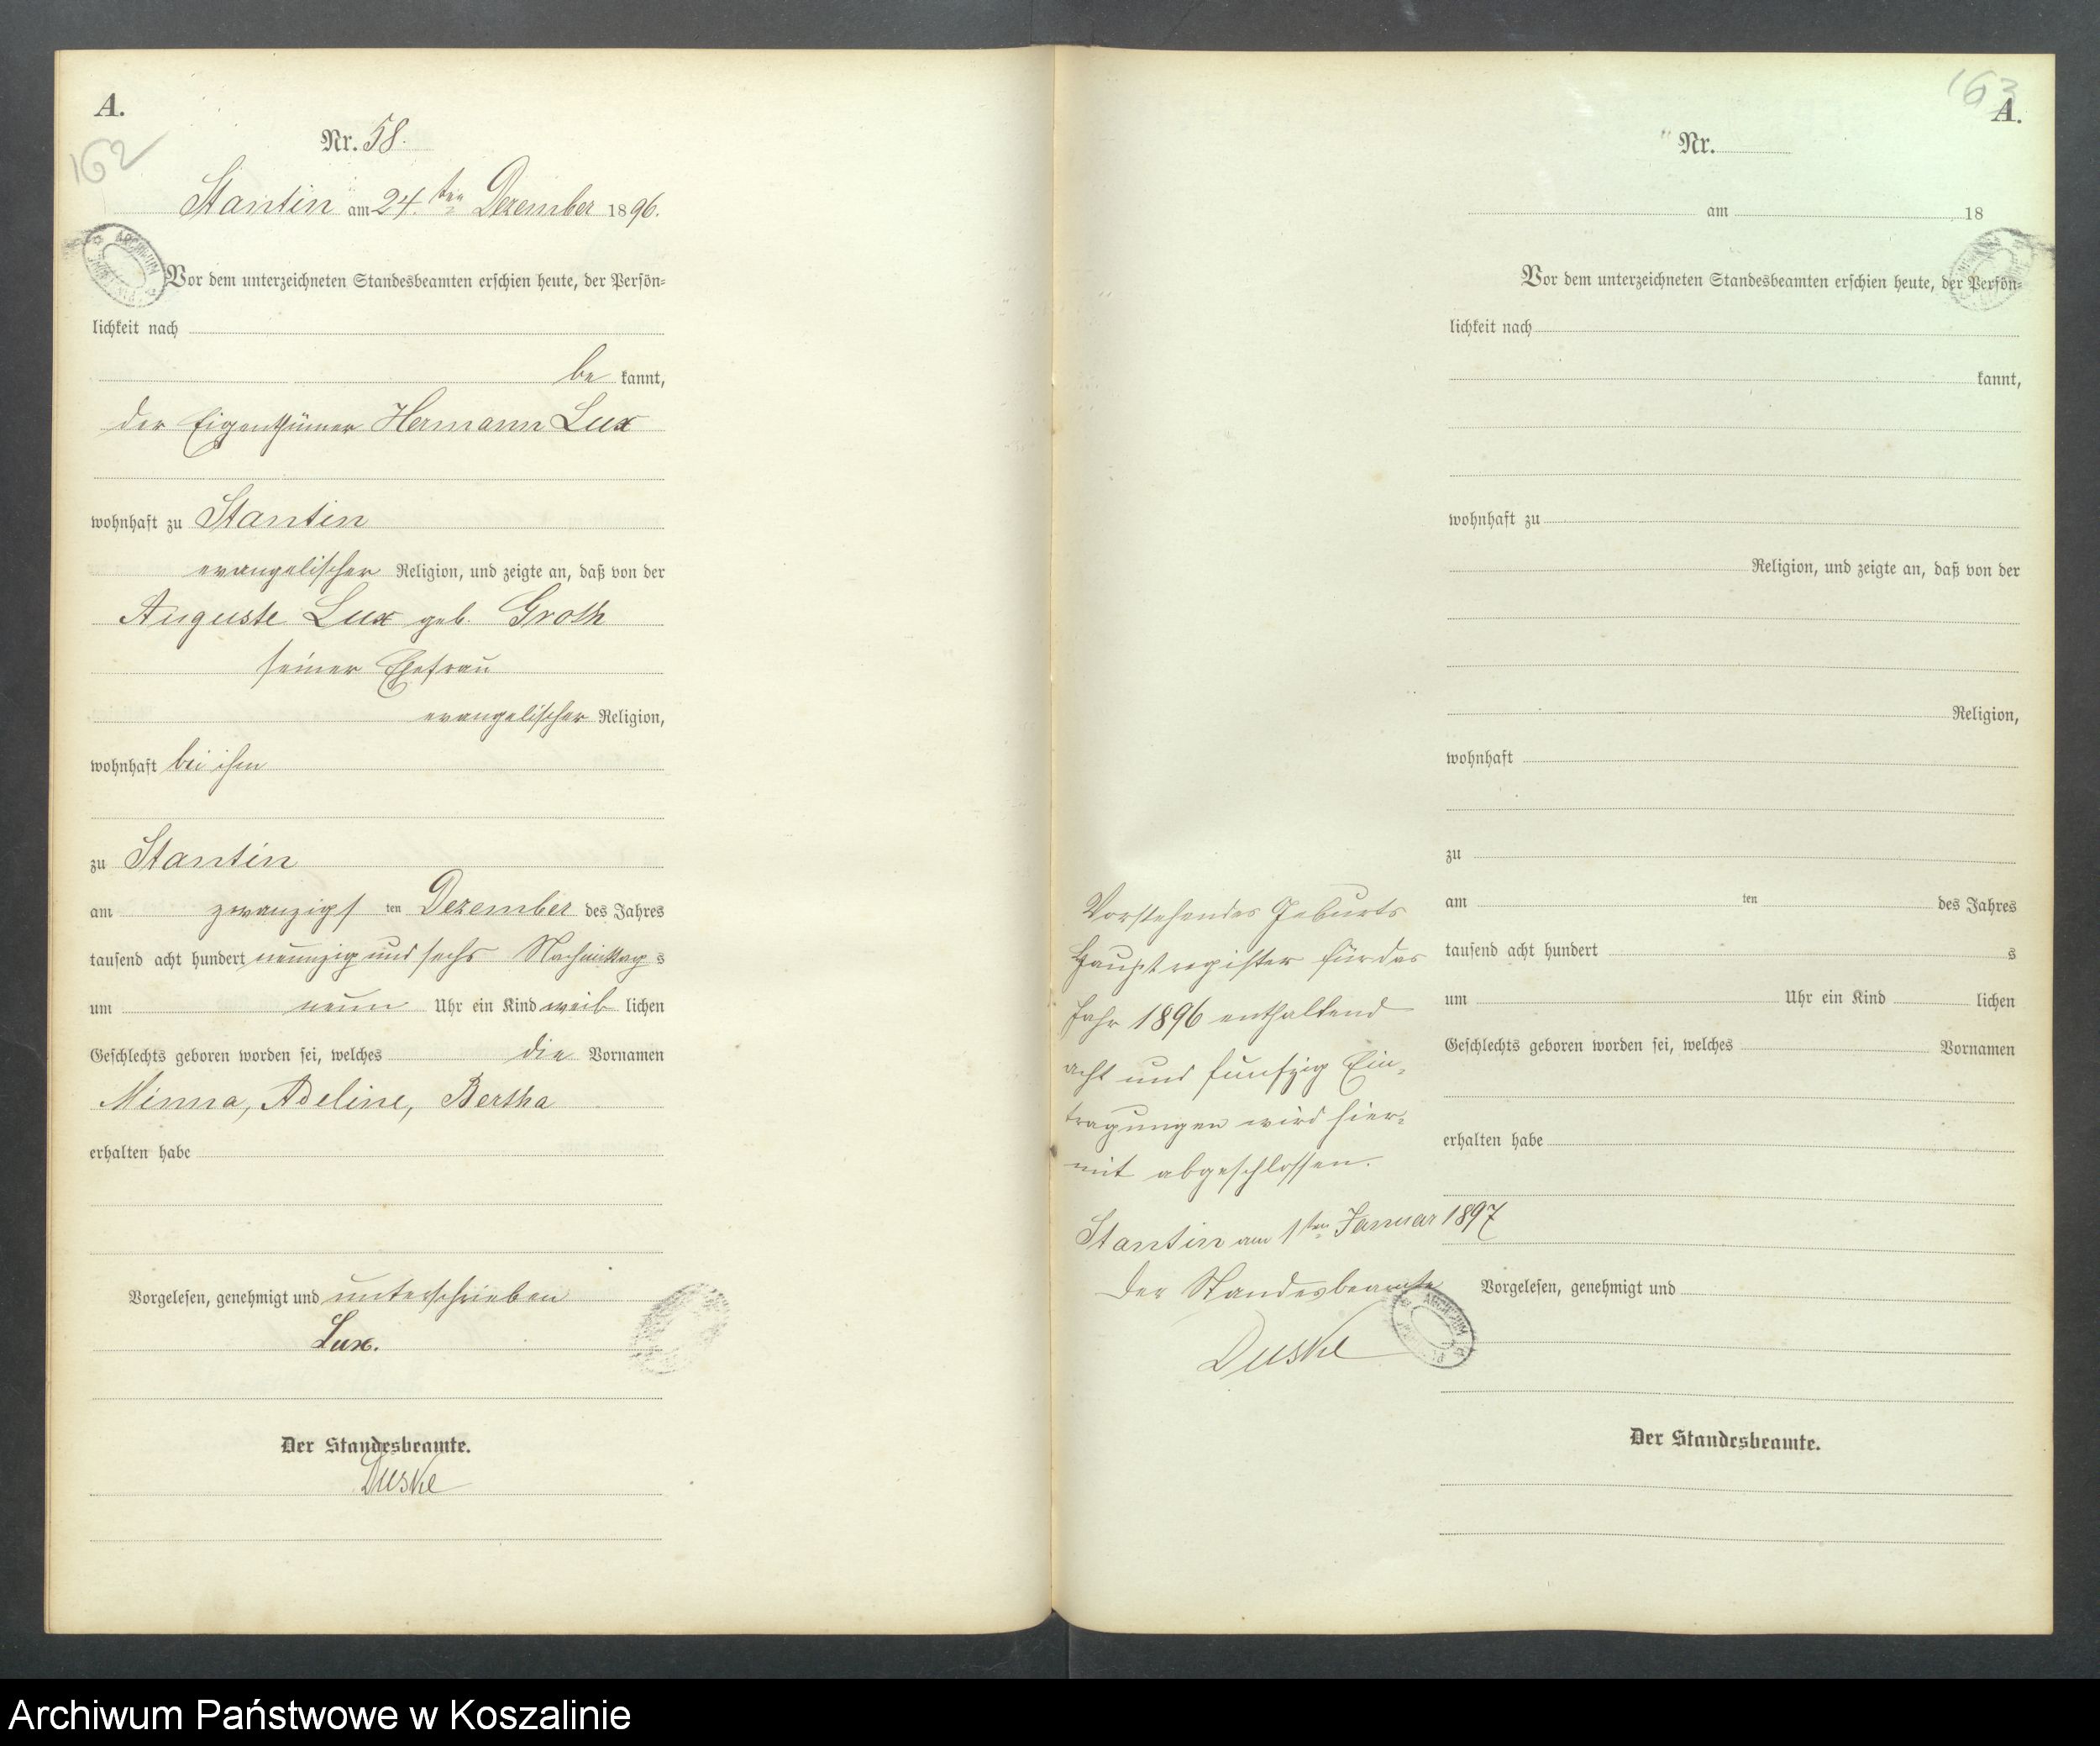 A.
162
Nr. 58.
Stantin am 24.ten Dezember 1896.
Vor dem unterzeichneten Standesbeamten erschien heute, der Persön=
lichkeit nach
be kannt,
der Eigenthümer Hermann Lux
wohnhaft zu Stantin
evangelischer Religion, und zeigte an, daß von der
Auguste Lux geb. Groth
seiner Ehefrau
evangelischer Religion,
wohnhaft bei ihm
zu Stantin
am zwanzigs ten Dezember des Jahres
tausend acht hundert neunzig und sechs Nachmittag s
um neun Uhr ein Kind weib lichen
Geschlechts geboren worden sei, welches die Vornamen
Minna, Adeline, Bertha
erhalten habe
Vorgelesen, genehmigt und unterschrieben
Lux.
Der Standesbeamte.
Duske
163
A.
Nr.
am 18
Vor dem unterzeichneten Standesbeamten erschien heute, der Persön=
lichkeit nach
kannt,
wohnhaft zu
Religion, und zeigte an, daß von der
Religion,
wohnhaft
zu
am ten des Jahres
tausend acht hundert s
um Uhr ein Kind lichen
Geschlechts geboren worden sei, welches Vornamen
erhalten habe
Vorgelesen, genehmigt und
Der Standesbeamte.
Vorstehendes Geburts
Hauptregister für das
Jahr 1896 enthaltend
acht und funfzig Ein=
tragungen wird hier=
mit abgeschlossen.
Stantin am 1ten Januar 1897
Der Standesbeamte
Duske
Archiwum Państwowe w Koszalinie